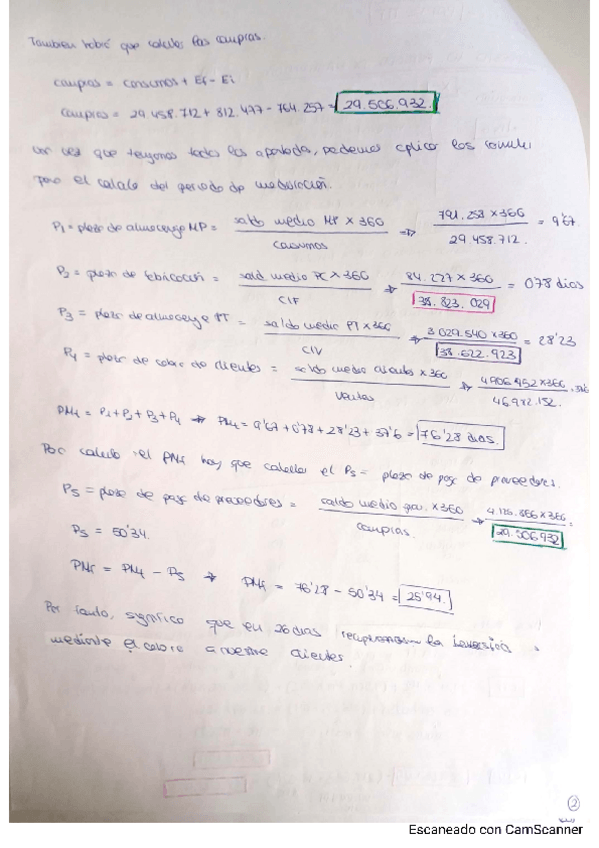 Tambien habrá que calcular las compras.
compras = consumos + Ef - Ei
compras = 29 458.712 + 812.477 - 764.257 = 29.506.932.
vez que tengamos todos los apartados, podemos aplicar las
para el calculo del periodo de maduración.
P1 = plazo de almacenaje MP = saldo medio MP x 360 / consumos ⇒ 791.258 x 360 / 29 458.712. = 9'67
P2 = plazo de fabricación = saldo medio PC x 360 / CIF ⇒ 84.227 x 360 / 38.823.029 = 0'78 dias
P3 = plazo de almacenaje PT = saldo medio PT x 360 / CIV ⇒ 3 029.540 x 360 / 38.622.923 = 28'23
P4 = plazo de cobro de clientes = saldo medio clientes x 360 / Ventas ⇒ 4906.452 x 360 / 46.972.152.
= P1 + P2 + P3 + P4 ⇒ = 9'67 + 0'78 + 28'23 + 37'6 = 76'28 dias.
calculo el hay que calcular el P5 = plazo de pago de proveedores.
P5 = plazo de pago de proveedores = saldo medio prov. x 360 / compras. ⇒ x 360 / 29.506.932 =
P5 = 50'34.
= - P5 ⇒ = 76'28 - 50'34 = 25'94.
Por tanto, significa que en 26 dias recuperamos la inversión
mediante el cobro a nuestros clientes.
2
Escaneado con CamScanner